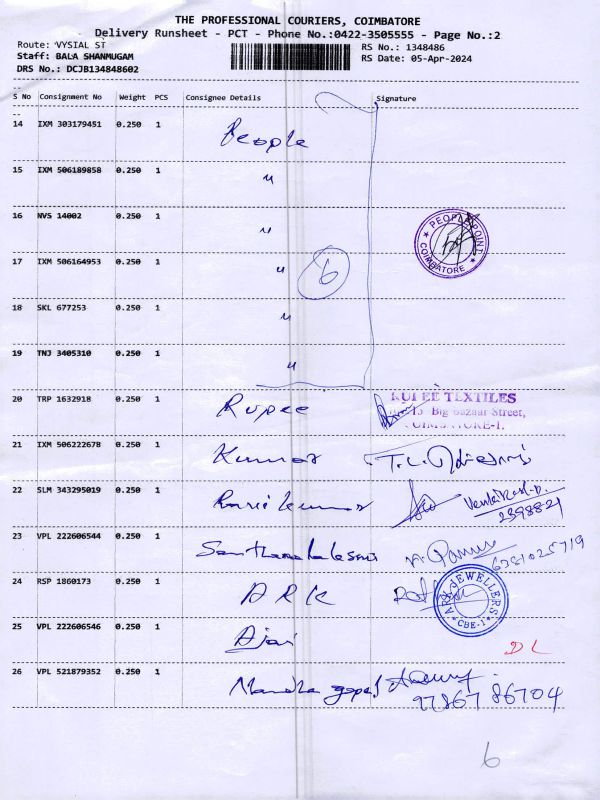 THE PROFESSIONAL COURIERS, COIMBATORE
Delivery Runsheet - PCT - Phone No.:0422-3505555 - Page No.:2
Route: VYSIAL ST
Staff: BALA SHANMUGAM
DRS No.: DCJB134848602
RS No.: 1348486
RS Date: 05-Apr-2024
S No Consignment No Weight PCS Consignee Details Signature
14 IXM 303179451 0.250 1 People
15 IXM 506189858 0.250 1 "
16 NVS 14002 0.250 1 "
PEOPLE POINT
COIMBATORE
17 IXM 506164953 0.250 1 " 6
18 SKL 677253 0.250 1 "
19 TNJ 3405310 0.250 1 "
20 TRP 1632918 0.250 1 Rupee
RUPEE TEXTILES
Big Bazaar Street,
COIMBATORE-1.
21 IXM 506222678 0.250 1 Kumar
22 SLM 343295019 0.250 1 Ravi kumar
2398821
23 VPL 222606544 0.250 1 6381025719
24 RSP 1860173 0.250 1 A R K
ARK JEWELLERS
CBE-1
25 VPL 222606546 0.250 1 Ajai DL
26 VPL 521879352 0.250 1 97867 86704
6